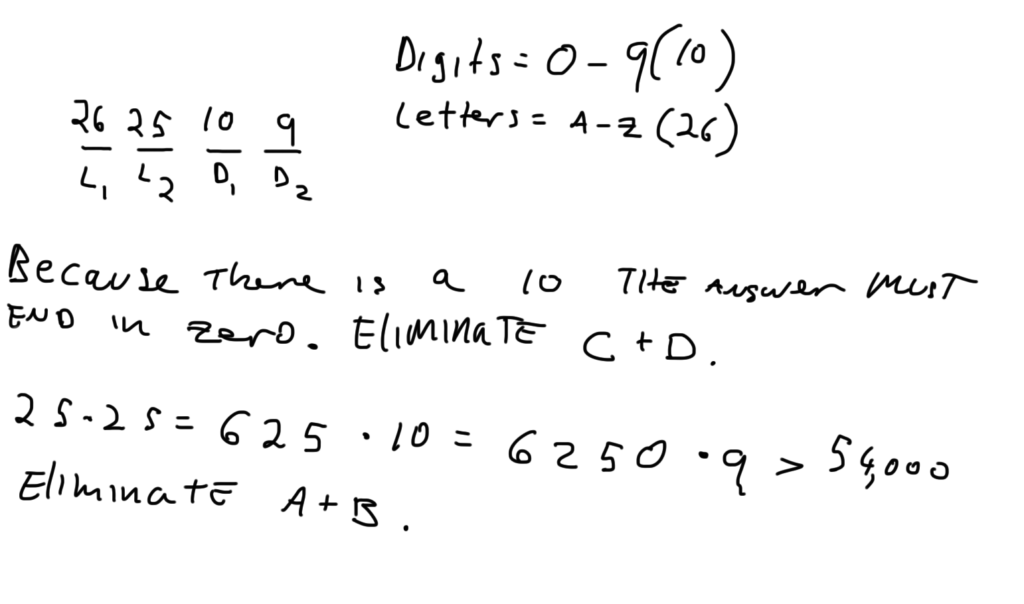 Digits = 0 - 9 (10)
Letters = A-Z (26)
26 25 10 9
L1 L2 D1 D2
Because There is a 10 THE Answer MUST
END in zero. EliMINaTE C + D.
25 · 25 = 625 · 10 = 6250 · 9 > 54,000
EliminatE A + B.